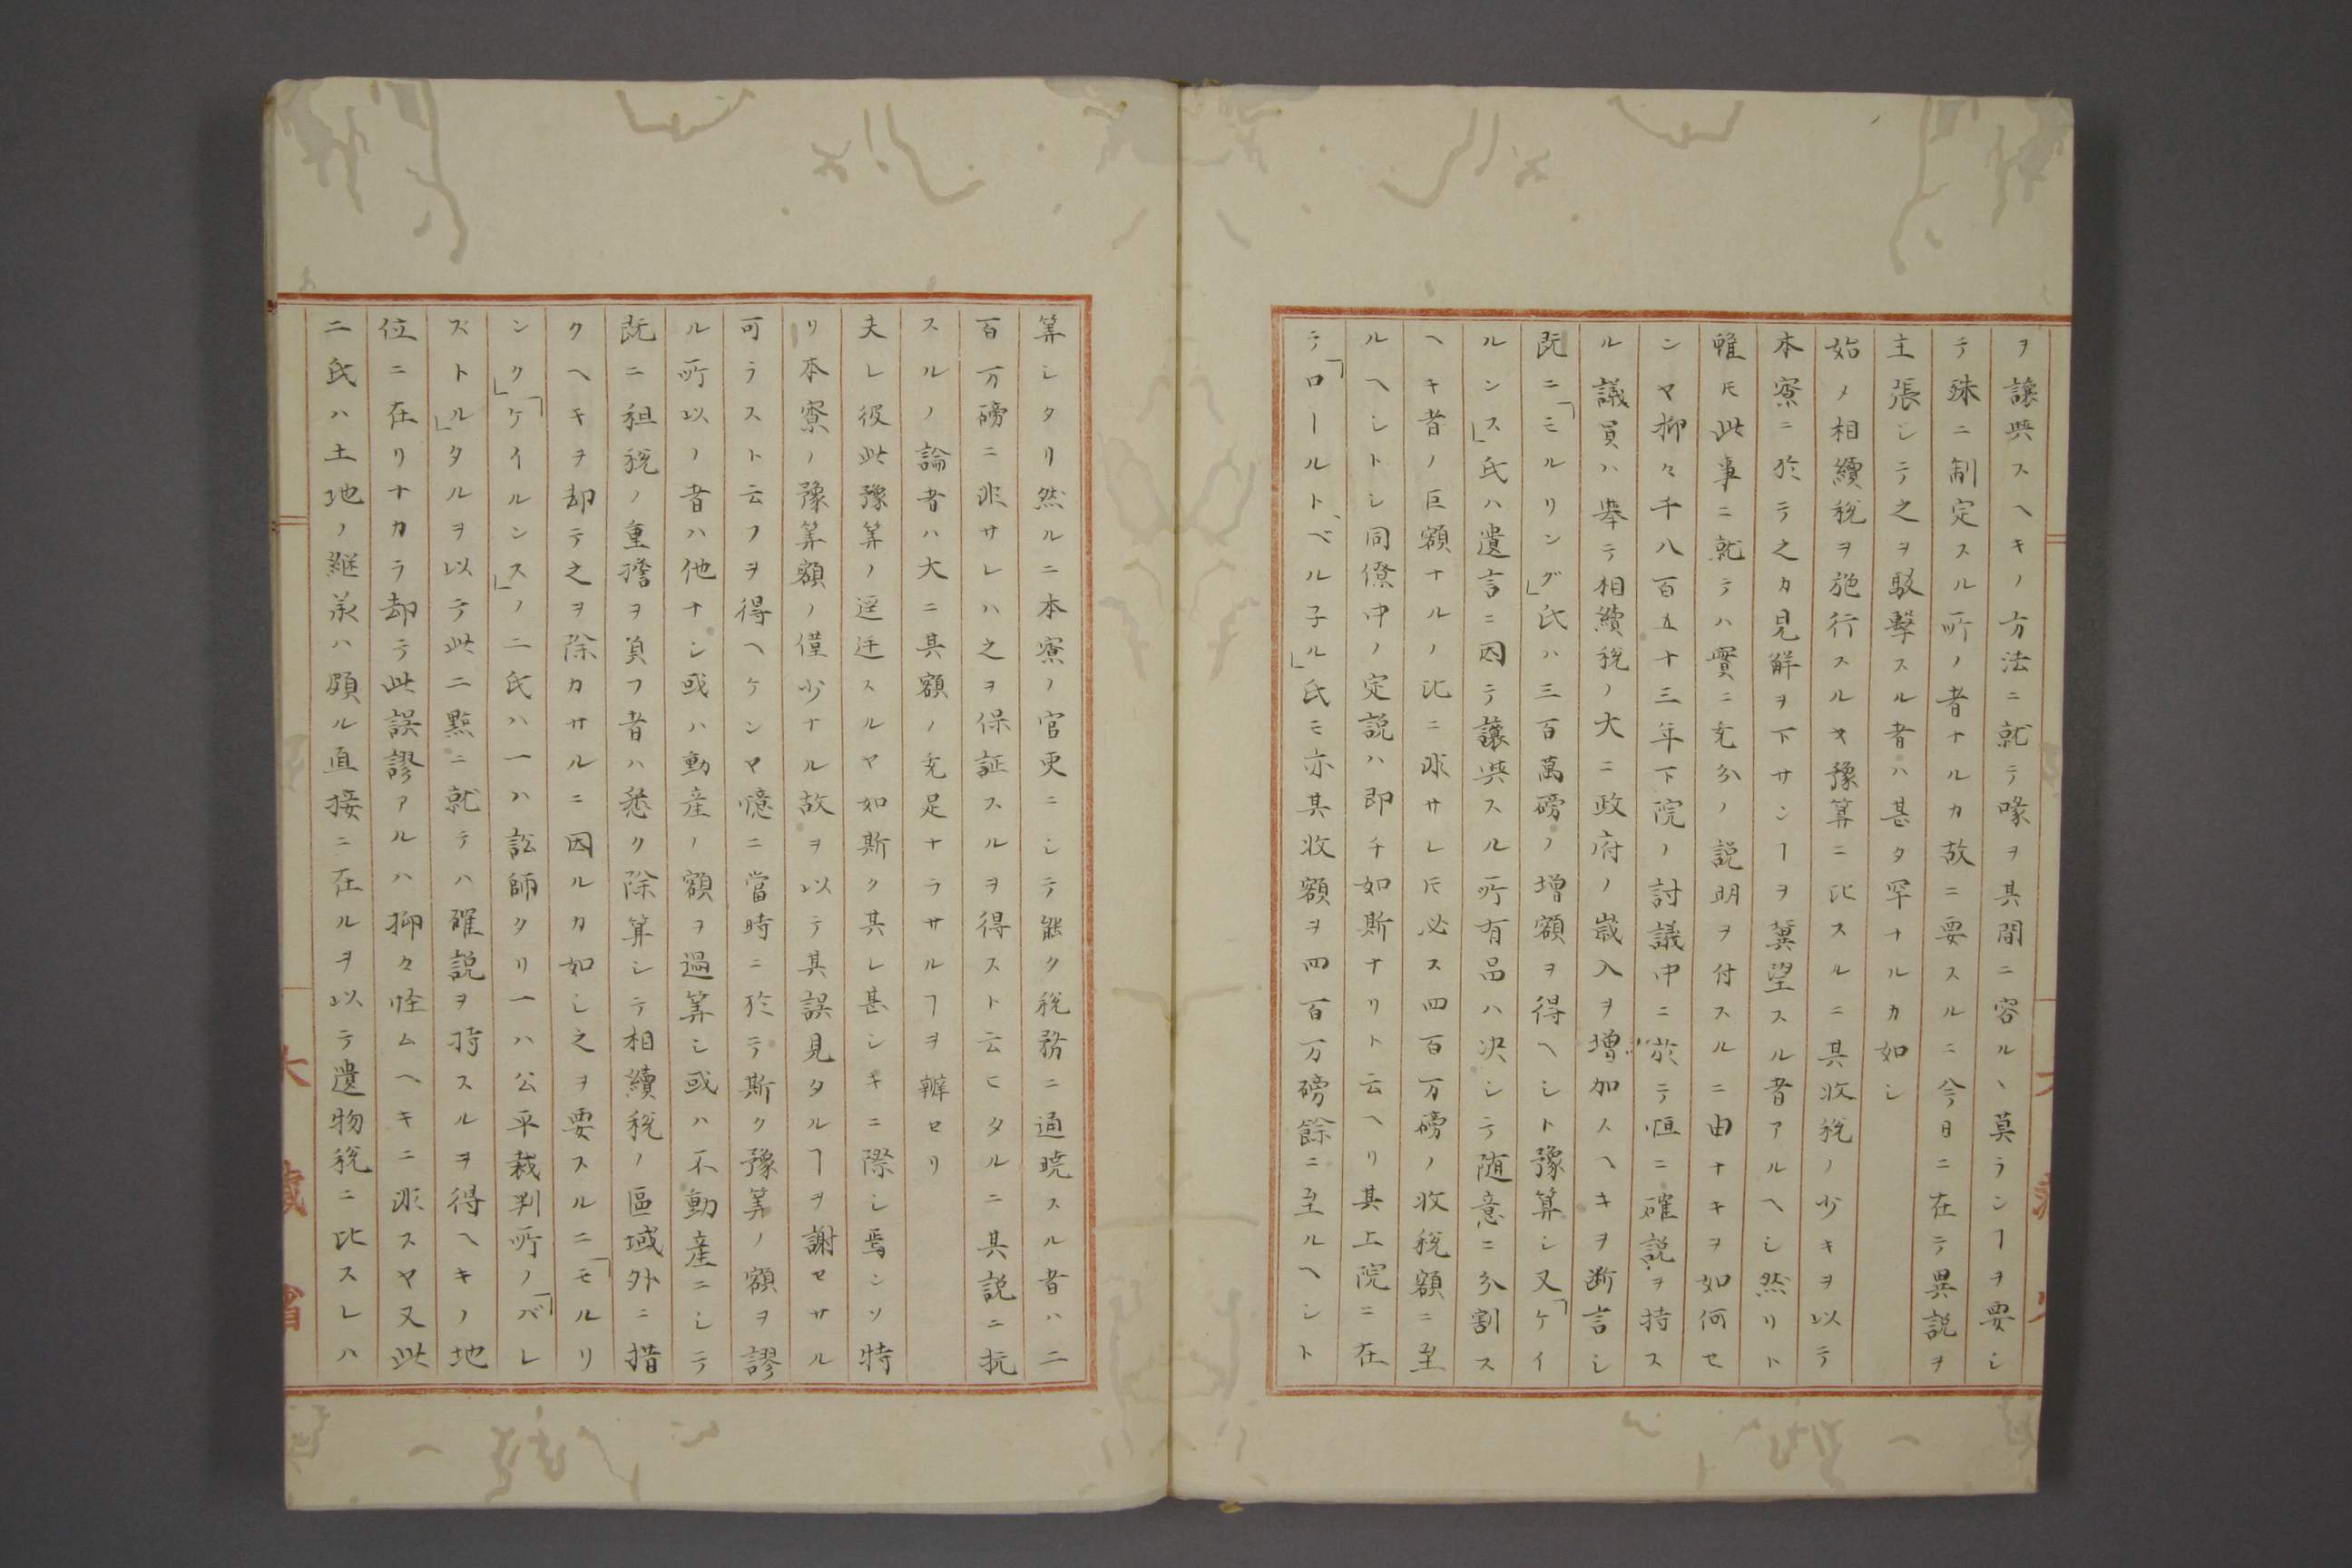 ヲ讓與スヘキノ方法ニ就テ喙ヲ其間ニ容ルヽ莫ランヿヲ要シ
テ殊ニ制定スル所ノ者ナルカ故ニ要スルニ今日ニ在テ異説ヲ
主張シテ之ヲ駁擊スル者ハ甚タ罕ナルカ如シ
始メ相續税ヲ施行スルヤ豫算ニ比スルニ其收税ノ少キヲ以テ
本寮ニ於テ之カ見解ヲ下サンヿヲ冀望スル者アルヘシ然リト
雖𪜈此事ニ就テハ實ニ充分ノ説明ヲ付スルニ由ナキヲ如何セ
ンヤ抑々千八百五十三年下院ノ討議中ニ於テ恒ニ確説ヲ持ス
ル議員ハ擧テ相續税ノ大ニ政府ノ歳入ヲ增加スヘキヲ断言シ
既ニ「ミルリング」氏ハ三百萬磅ノ增額ヲ得ヘシト豫算シ又「ケイ
ルンス」氏ハ遺言ニ因テ讓與スル所有品ハ决シテ随意ニ分割ス
ヘキ者ノ巨額ナルノ比ニ非サレ𪜈必ス四百万磅ノ收税額ニ至
ルヘシトシ同僚中ノ定説ハ即チ如斯ナリト云ヘリ其上院ニ在
テ「ロールト、ベル子ル」氏モ亦其收額ヲ四百万磅餘ニ至ルヘシト
算シタリ然ルニ本寮ノ官吏ニシテ能ク税務ニ通曉スル者ハ二
百万磅ニ非サレハ之ヲ保証スルヲ得スト云ヒタルニ其説ニ抗
スルノ論者ハ大ニ其額ノ充足ナラサルヿヲ辨セリ
夫レ彼此豫算ノ逕迋スルヤ如斯ク其レ甚シキニ際シ焉ンソ特
リ本寮ノ豫算額ノ僅少ナル故ヲ以テ其誤見タルヿヲ謝セサル
可ラスト云フヲ得ヘケンヤ憶ニ當時ニ於テ斯ク豫算ノ額ヲ謬
ル所以ノ者ハ他ナシ或ハ動産ノ額ヲ過算シ或ハ不動産ニシテ
既ニ租税ノ重擔ヲ負フ者ハ悉ク除算シテ相續税ノ區域外ニ措
クヘキヲ却テ之ヲ除カサルニ因ルカ如シ之ヲ要スルニ「モルリ
ンク」「ケイルンス」ノ二氏ハ一ハ訟師タリ一ハ公平裁判所ノ「バレ
ストル」タルヲ以テ此二點ニ就テハ確説ヲ持スルヲ得ヘキノ地
位ニ在リナカラ却テ此誤謬アルハ抑々怪ムヘキニ非スヤ又此
二氏ハ土地ノ継承ハ頗ル直接ニ在ルヲ以テ遺物税ニ比スレハ
大藏省